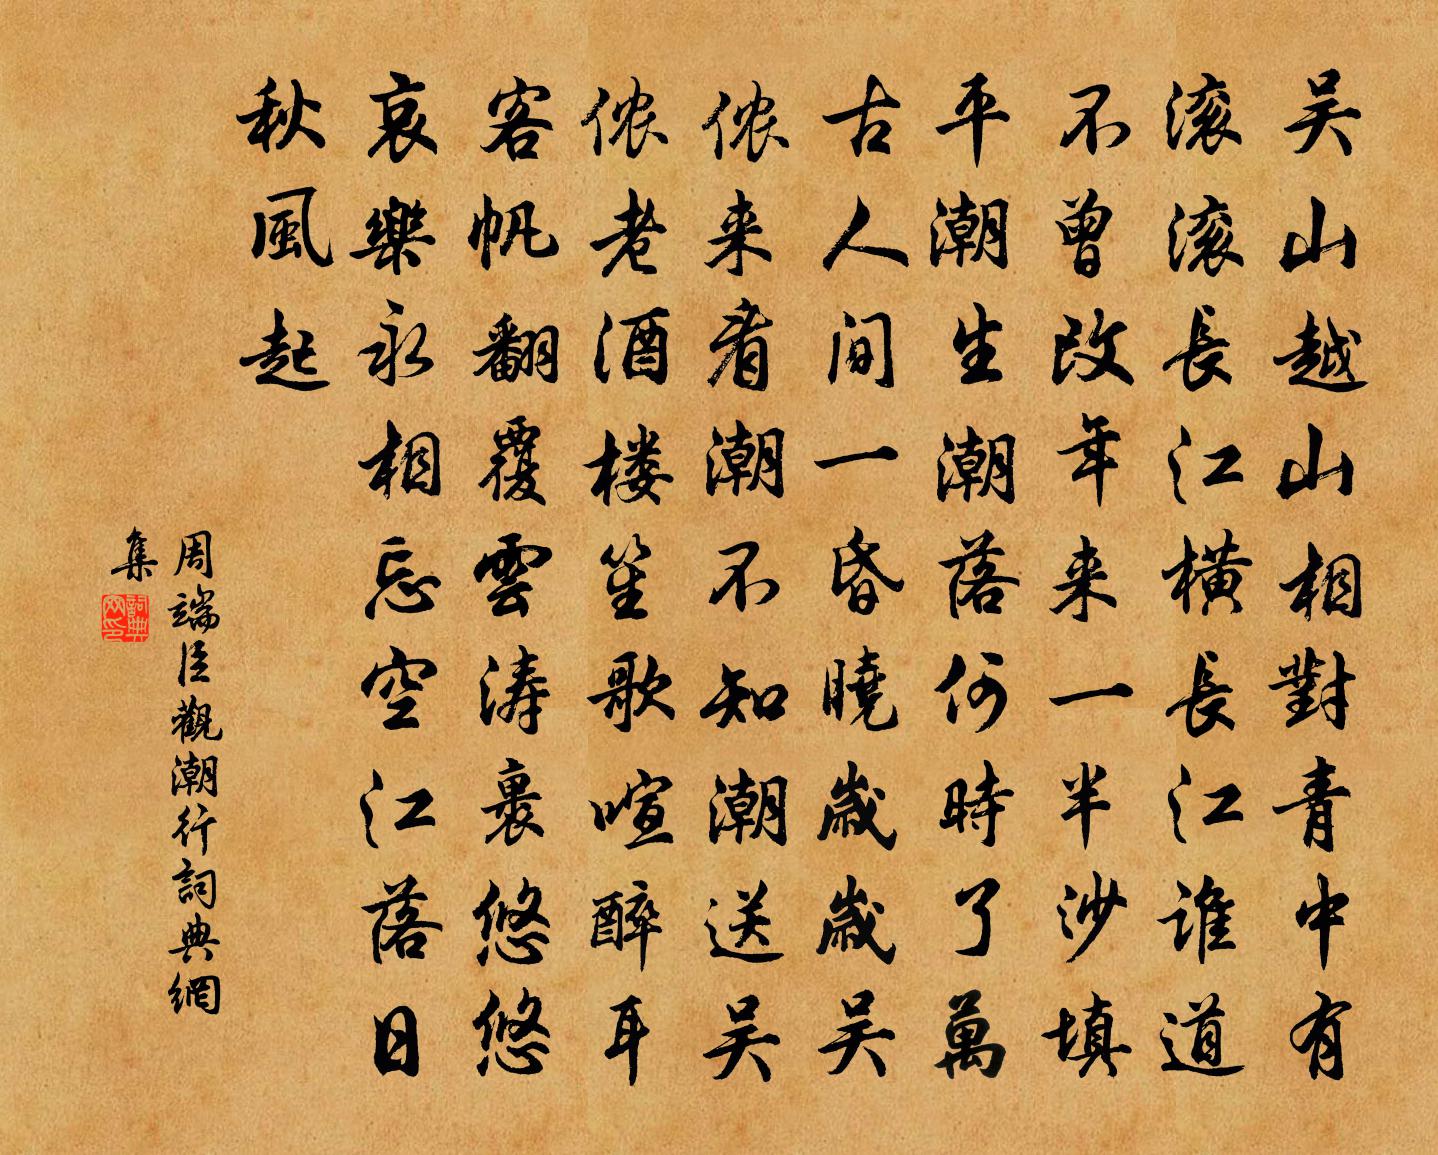 吴山越山相對青中有
滚滚長江橫長江谁道
不曾改年来一半沙填
平潮生潮落何時了萬
古人间一昏曉歲歲吴
侬来看潮不知潮送吴
侬老酒楼笙歌喧醉耳
客帆翻覆雲涛裏悠悠
哀樂永相忘空江落日
秋風起
周端臣觀潮行詞典網
集
詞典
网印